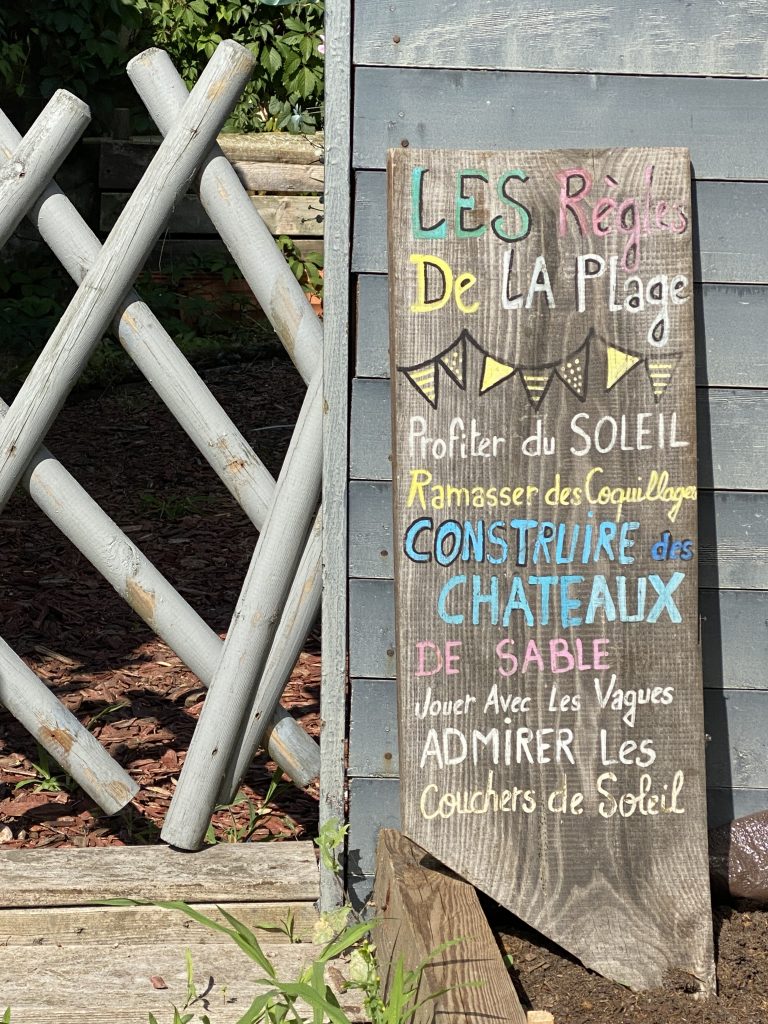 LES Règles
De LA PLage
Profiter du SOLEIL
Ramasser des Coquillages
CONSTRUIRE des
CHATEAUX
DE SABLE
Jouer Avec Les Vagues
ADMIRER Les
Couchers de Soleil